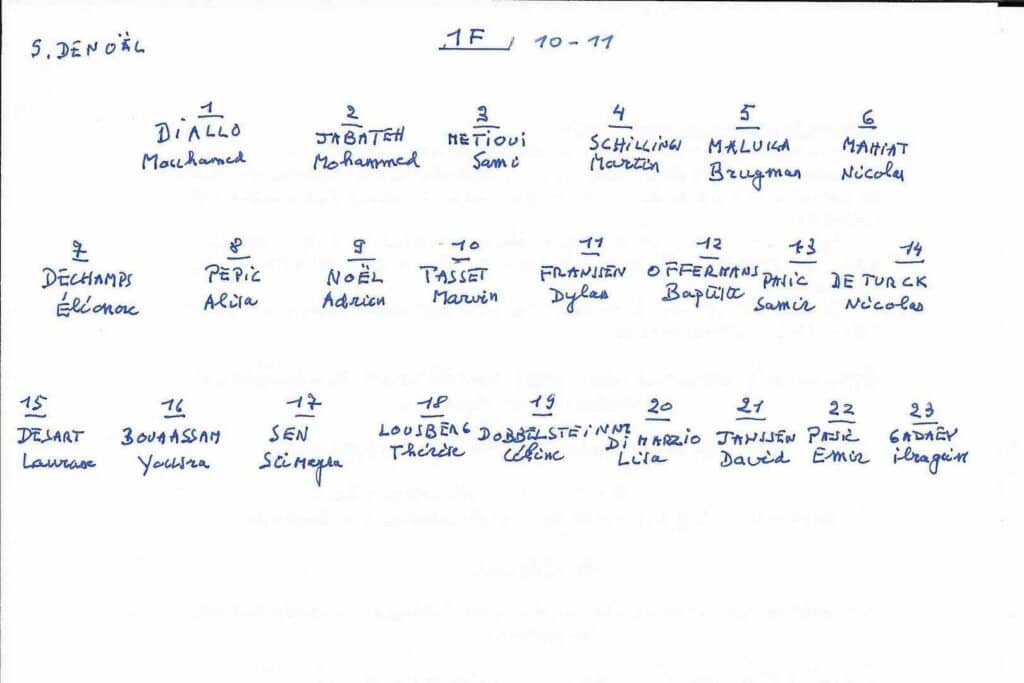 S. DENOËL 1F 10-11
1 2 3 4 5 6
DiALLO JABATEH METIOUI SCHILLINGS MALUILA MAHIAT
Mouhamed Mohammed Sami Martin Brugman Nicolas
7 8 9 10 11 12 13 14
DECHAMPS PEPIC NOËL TASSET FRANSSEN OFFERMANS PASIC DE TURCK
Éléonore Alisa Adrien Marvin Dylan Baptiste Samir Nicolas
15 16 17 18 19 20 21 22 23
DESART BOUAASSAM SEN LOUSBERG DOBBELSTEIN Di MARZIO JANSSEN PASIC GADAEV
Laurane Yousra Thérèse Céline Lisa David Emir